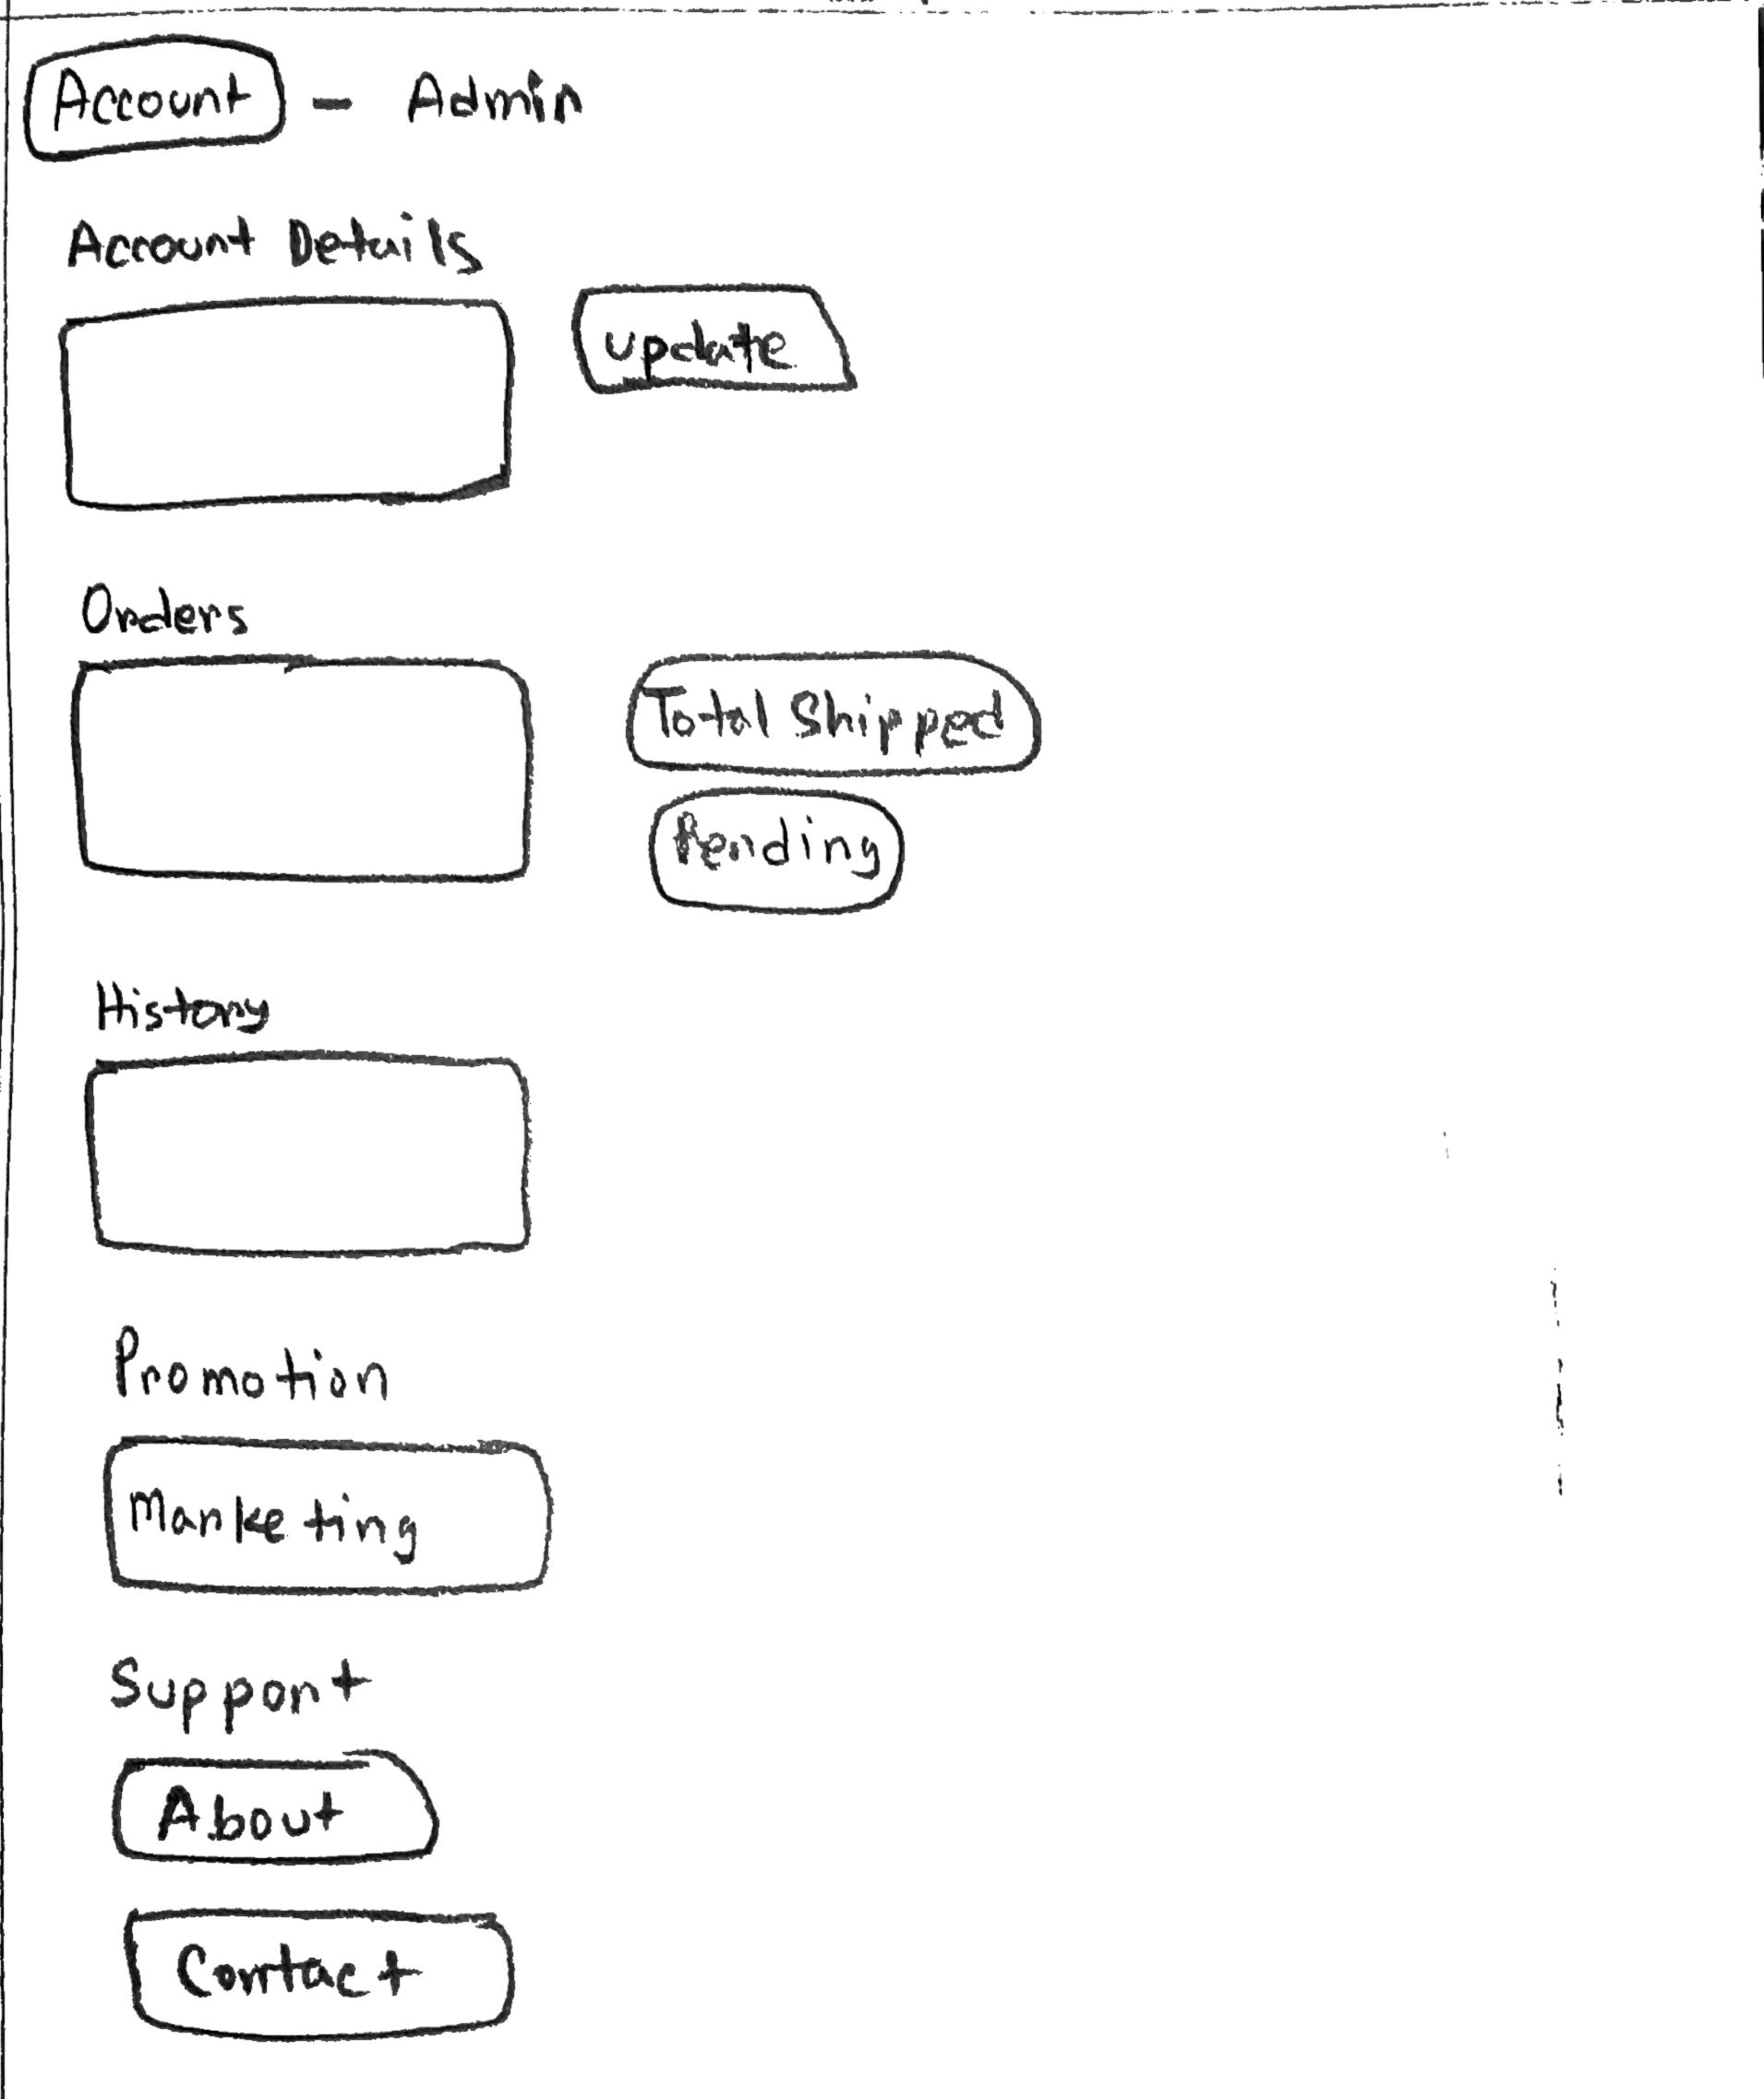 Account - Admin
Account Details
update
Orders
Total Shipped
Pending
History
Promotion
Marketing
Support
About
Contact